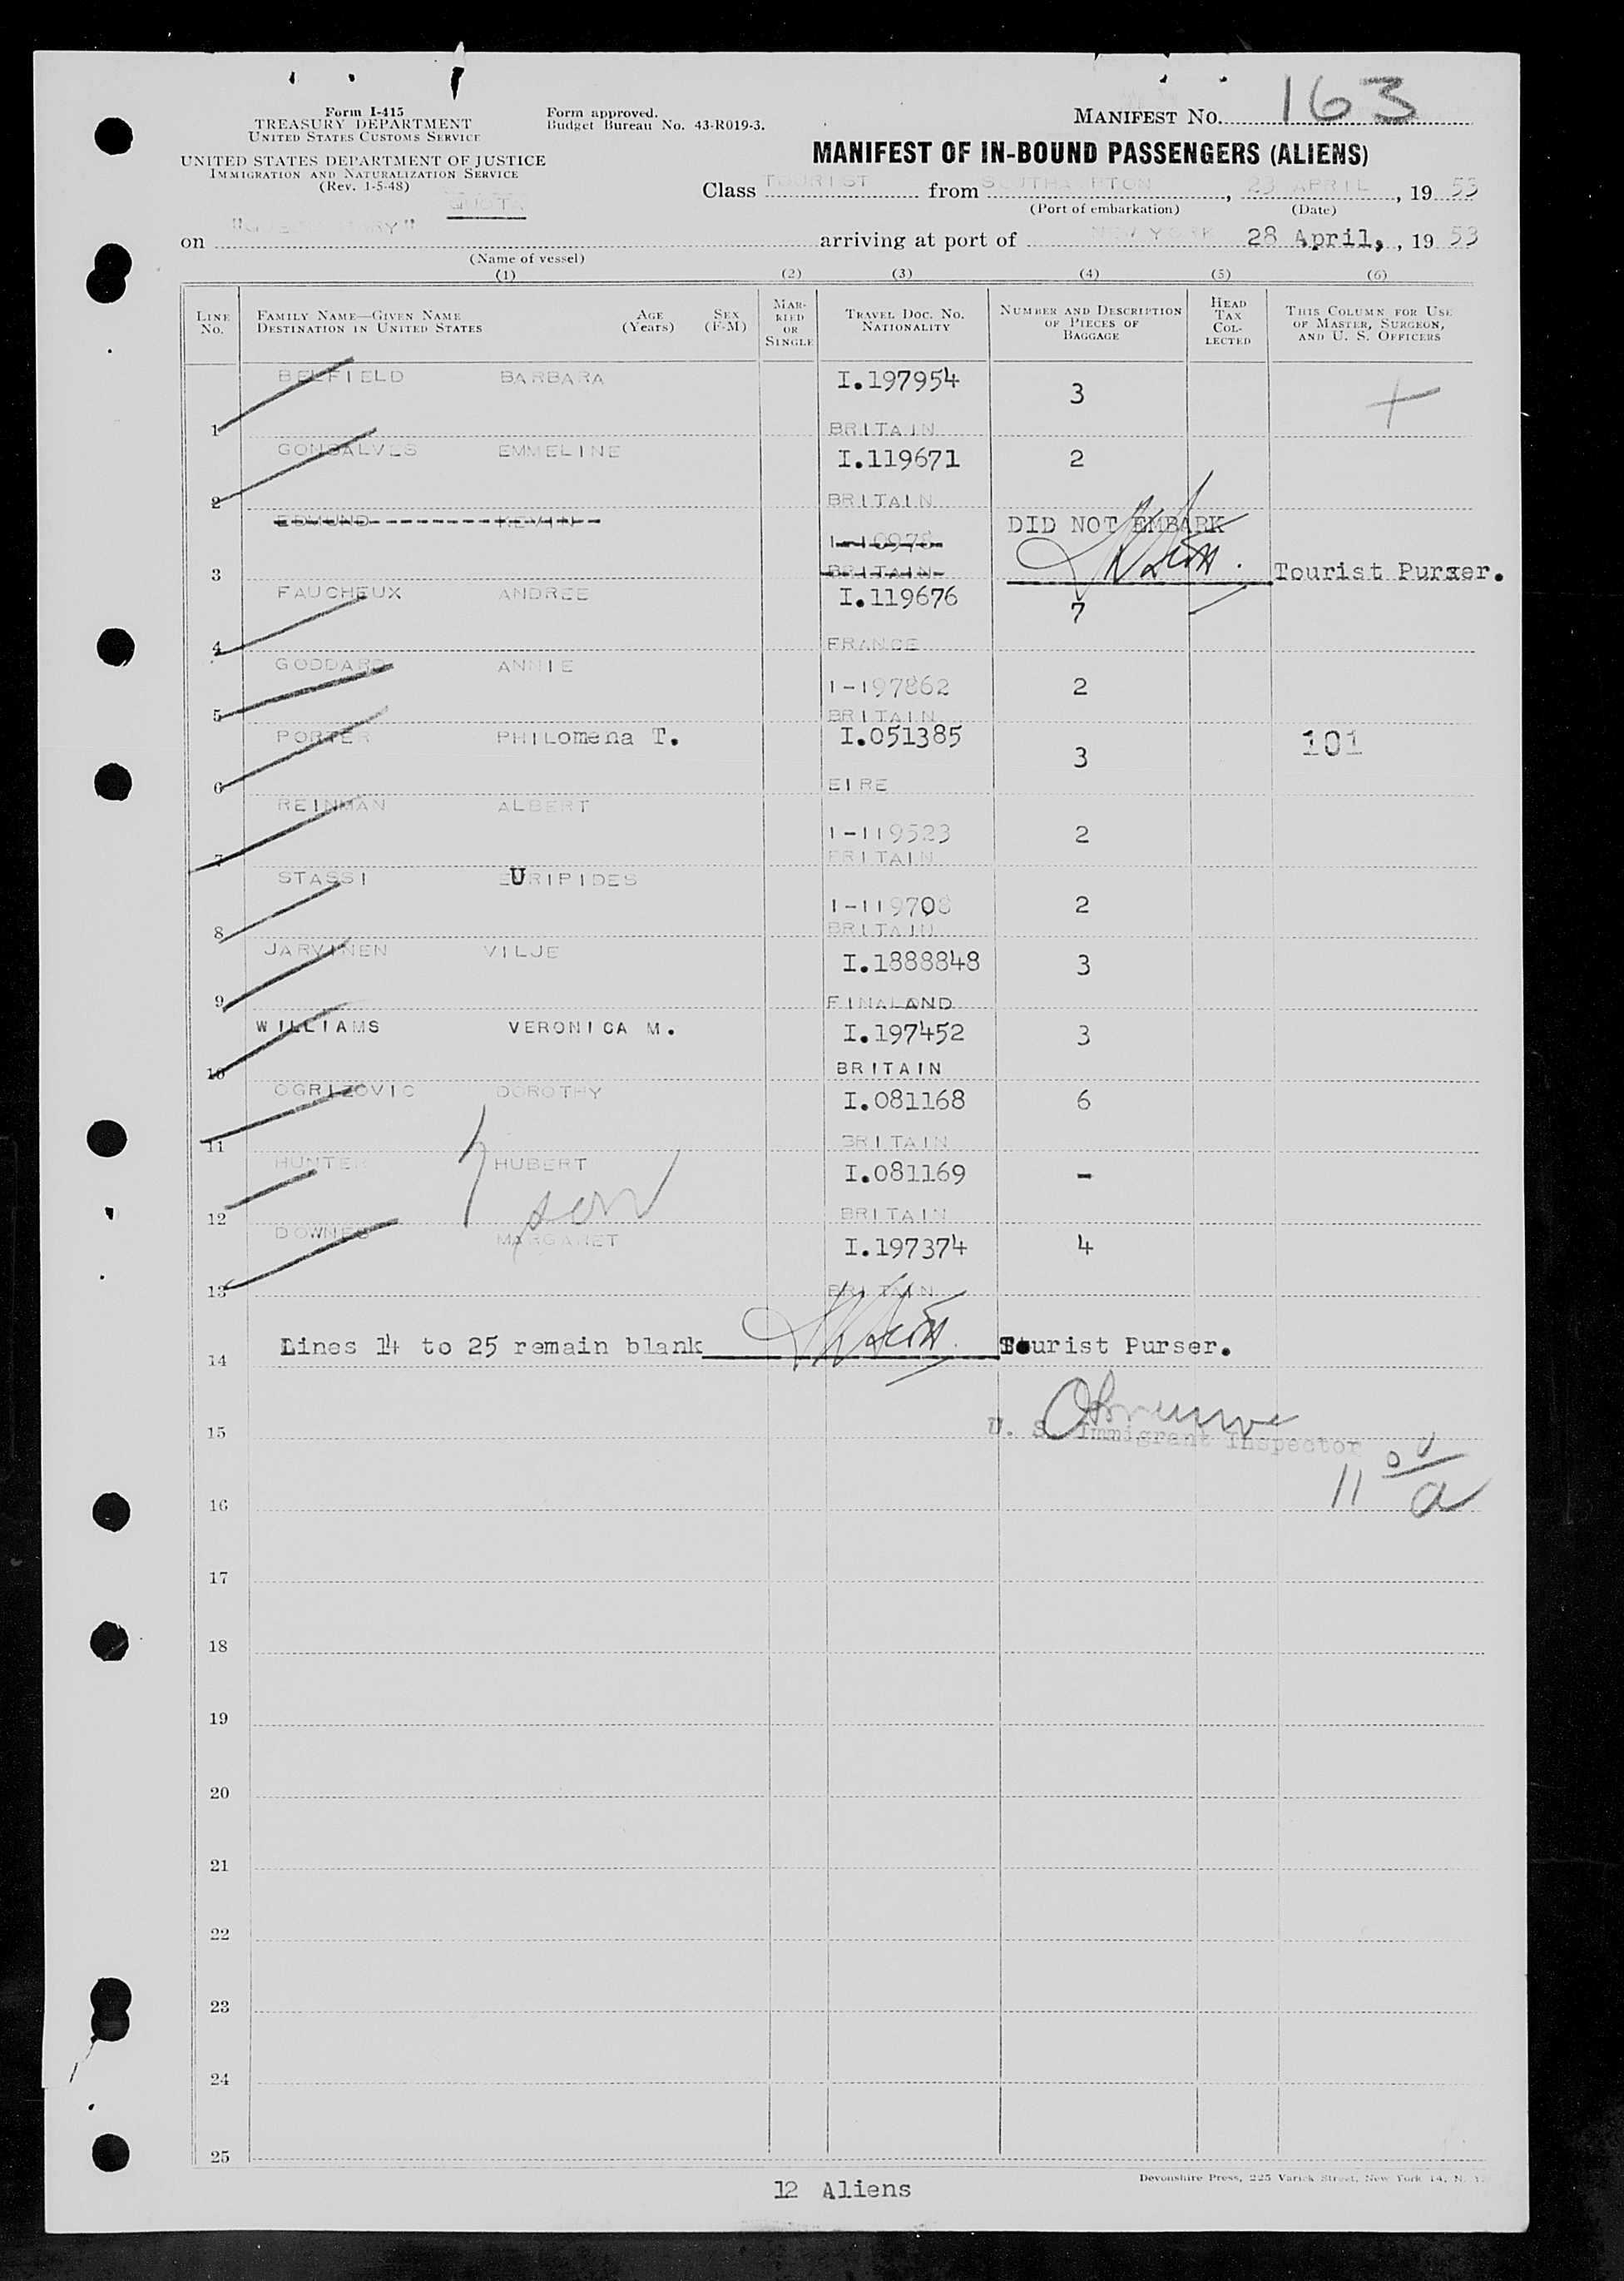 Form I-415
TREASURY DEPARTMENT
UNITED STATES CUSTOMS SERVICE
Form approved.
Budget Bureau No. 43-R019-3.
MANIFEST NO. 163
UNITED STATES DEPARTMENT OF JUSTICE
IMMIGRATION AND NATURALIZATION SERVICE
(Rev. 1-5-48)
MANIFEST OF IN-BOUND PASSENGERS (ALIENS)
QUOTA
Class TOURIST from SOUTHAMPTON, 23 APRIL, 19 53
(Port of embarkation) (Date)
on "QUEEN MARY" arriving at port of NEW YORK 28 April, , 19 53
(Name of vessel)
(1) (2) (3) (4) (5) (6)
LINE NO. FAMILY NAME—GIVEN NAME DESTINATION IN UNITED STATES AGE (Years) SEX (F-M) MARRIED OR SINGLE TRAVEL DOC. NO. NATIONALITY NUMBER AND DESCRIPTION OF PIECES OF BAGGAGE HEAD TAX COLLECTED THIS COLUMN FOR USE OF MASTER, SURGEON, AND U. S. OFFICERS
BELFIELD BARBARA I.197954 3 +
1 BRITAIN
GONSALVES EMMELINE I.119671 2
2 BRITAIN
EDMUND KEVIN DID NOT EMBARK
3 BRITAIN Tourist Purser.
FAUCHEUX ANDREE I.119676 7
4 FRANCE
GODDARD ANNIE I-197862 2
5 BRITAIN
PORTER PHILomena T. I.051385 3 101
6 EIRE
REINMAN ALBERT I-119523 2
7 BRITAIN
STASSI EURIPIDES I-119708 2
8 BRITAIN
JARVINEN VILJE I.1888848 3
9 FINALAND
WILLIAMS VERONICA M. I.197452 3
10 BRITAIN
OGRIZOVIC DOROTHY I.081168 6
11 BRITAIN
HUNTER HUBERT I.081169 -
son
12 BRITAIN
DOWNES MARGARET I.197374 4
13 BRITAIN
Lines 14 to 25 remain blank Tourist Purser.
14
15 U. S. Immigrant Inspector
11 00/a
16
17
18
19
20
21
22
23
24
25
12 Aliens
Devonshire Press, 225 Varick Street, New York 14, N. Y.